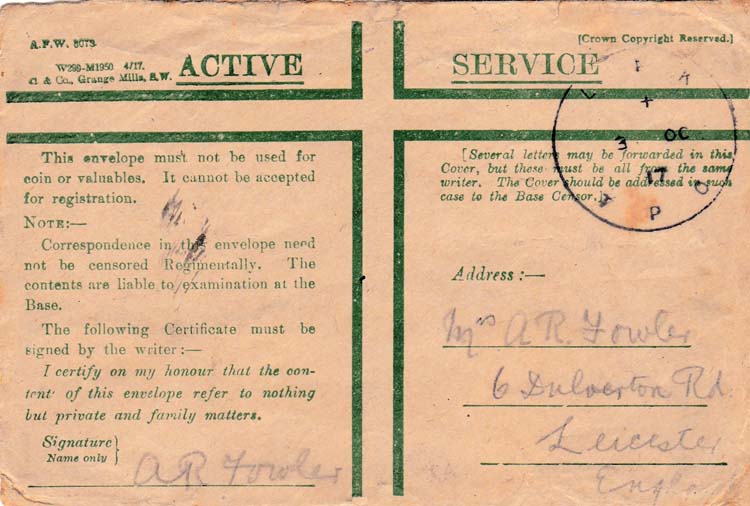 A.F.W. 3078
[Crown Copyright Reserved.]
W290-M1950 4/17.
& Co., Grange Mills, S.W.
ACTIVE SERVICE
This envelope must not be used for
coin or valuables. It cannot be accepted
for registration.
NOTE:—
Correspondence in this envelope need
not be censored Regimentally. The
contents are liable to examination at the
Base.
The following Certificate must be
signed by the writer:—
I certify on my honour that the con-
tent of this envelope refer to nothing
but private and family matters.
Signature}
Name only}
A R Fowler
[Several letters may be forwarded in this
Cover, but these must be all from the same
writer. The Cover should be addressed in such
case to the Base Censor.]
3 OC
17
A P O
Address:—
Mrs A R. Fowler
6 Dulverton Rd
Leicester
England